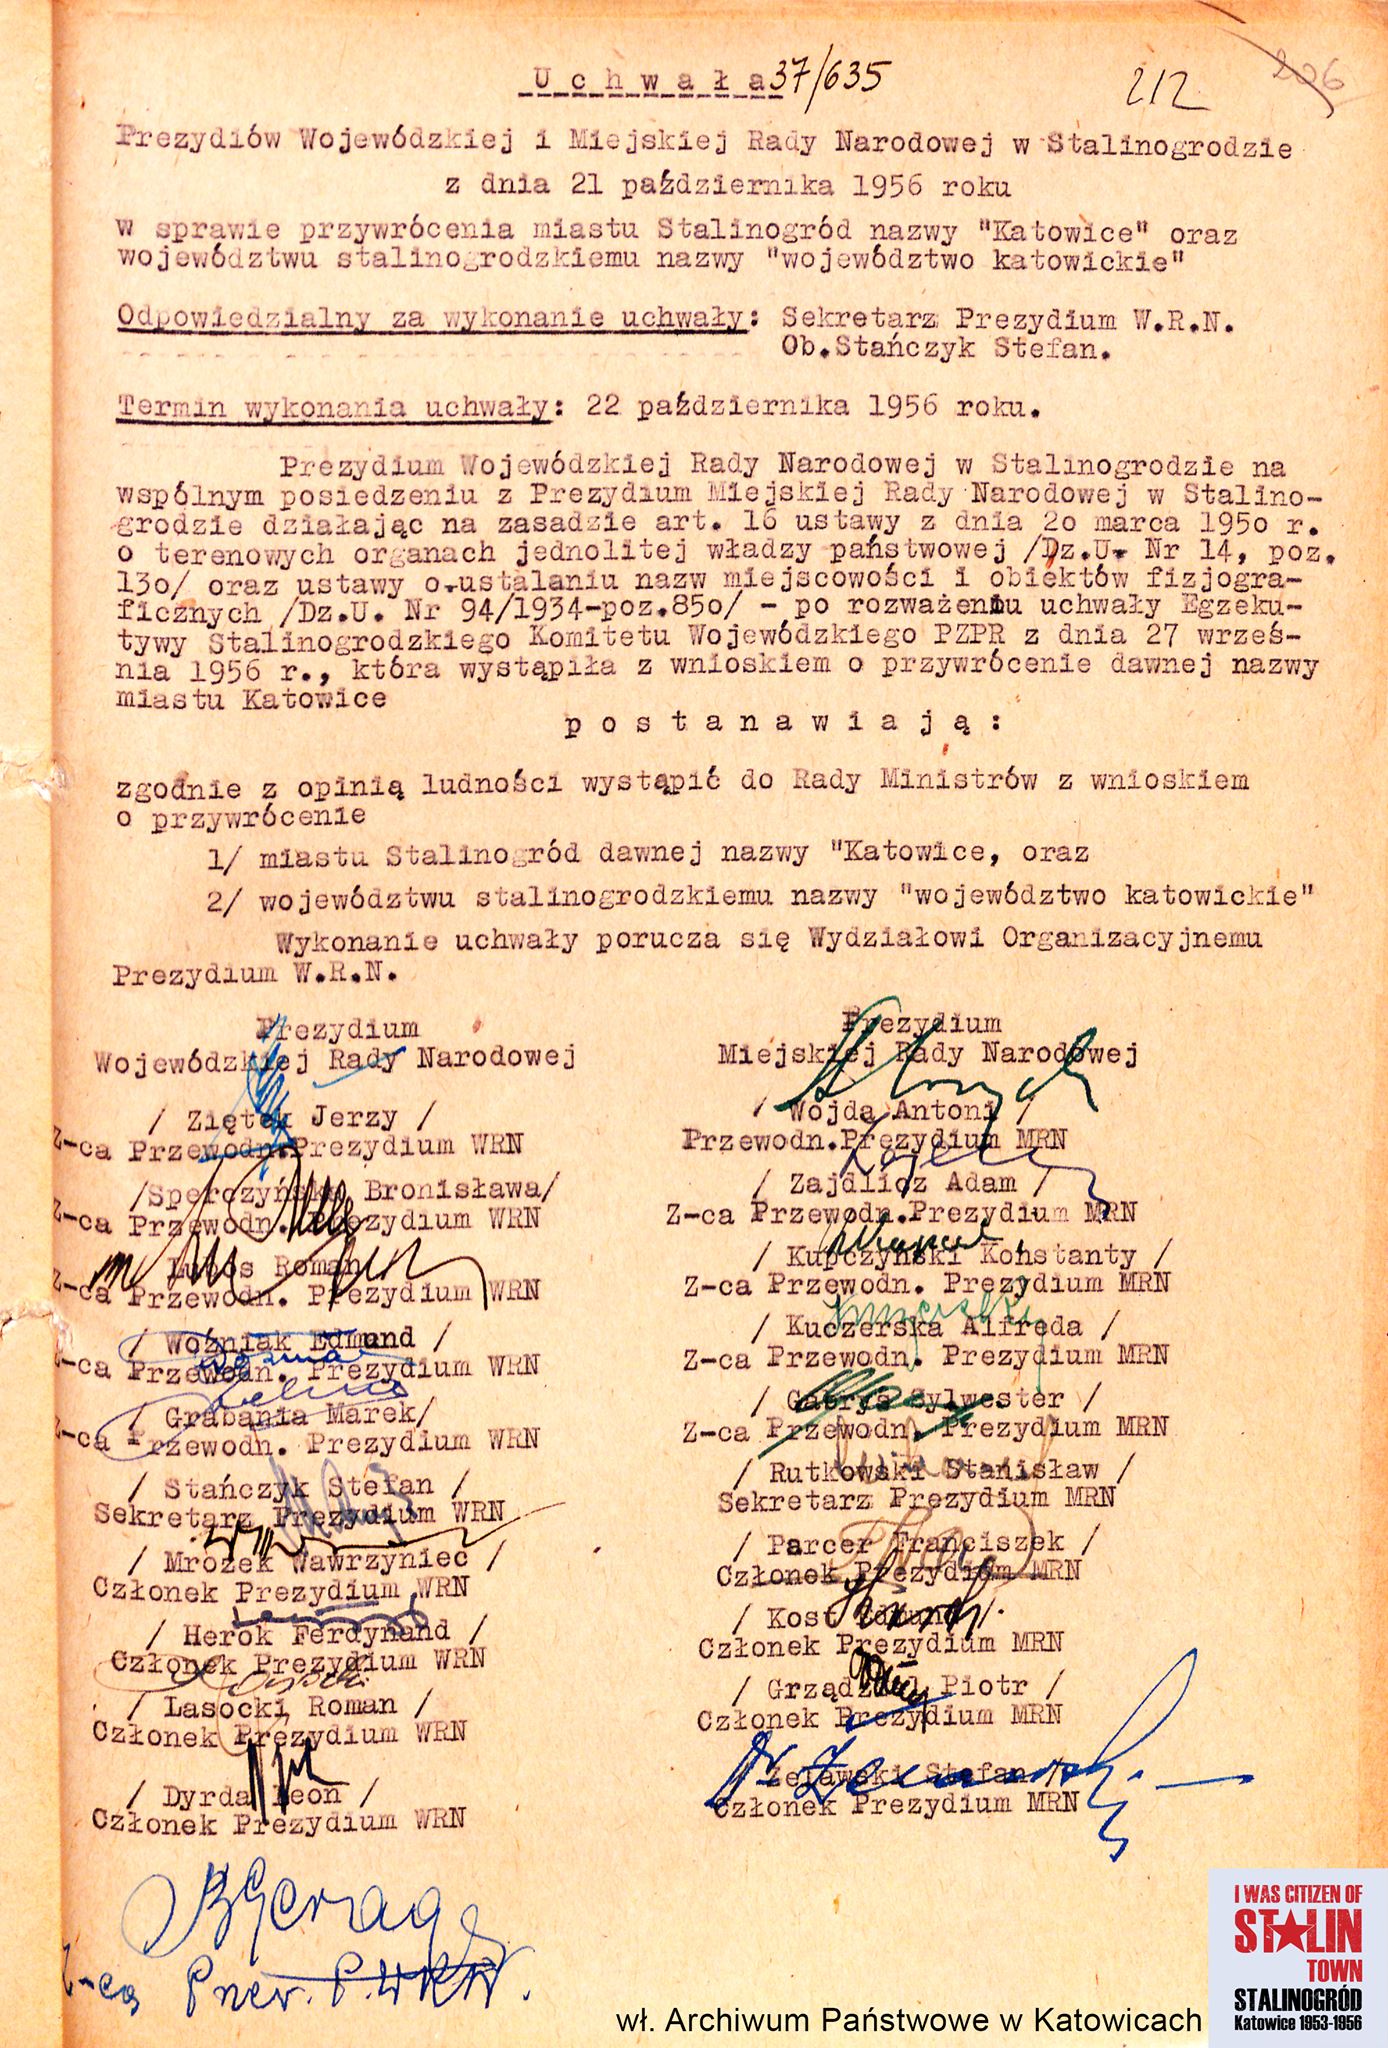 U c h w a ł a 37/635
212
206
Prezydiów Wojewódzkiej i Miejskiej Rady Narodowej w Stalinogrodzie
z dnia 21 października 1956 roku
w sprawie przywrócenia miastu Stalinogród nazwy "Katowice" oraz
województwu stalinogrodzkiemu nazwy "województwo katowickie"
Odpowiedzialny za wykonanie uchwały: Sekretarz Prezydium W.R.N.
Ob.Stańczyk Stefan.
Termin wykonania uchwały: 22 października 1956 roku.
Prezydium Wojewódzkiej Rady Narodowej w Stalinogrodzie na
wspólnym posiedzeniu z Prezydium Miejskiej Rady Narodowej w Stalino-
grodzie działając na zasadzie art. 16 ustawy z dnia 2o marca 195o r.
o terenowych organach jednolitej władzy państwowej /Dz.U. Nr 14, poz.
13o/ oraz ustawy o ustalaniu nazw miejscowości i obiektów fizjogra-
ficznych /Dz.U. Nr 94/1934-poz.85o/ - po rozważeniu uchwały Egzeku-
tywy Stalinogrodzkiego Komitetu Wojewódzkiego PZPR z dnia 27 wrześ-
nia 1956 r., która wystąpiła z wnioskiem o przywrócenie dawnej nazwy
miastu Katowice
p o s t a n a w i a j ą :
zgodnie z opinią ludności wystąpić do Rady Ministrów z wnioskiem
o przywrócenie
1/ miastu Stalinogród dawnej nazwy "Katowice, oraz
2/ województwu stalinogrodzkiemu nazwy "województwo katowickie"
Wykonanie uchwały porucza się Wydziałowi Organizacyjnemu
Prezydium W.R.N.
Prezydium
Wojewódzkiej Rady Narodowej
/ Ziętek Jerzy /
Z-ca Przewodn.Prezydium WRN
/Sperczyńska Bronisława/
Z-ca Przewodn. Prezydium WRN
Roman
Z-ca Przewodn. Prezydium WRN
/ Woźniak Edmund /
Z-ca Przewodn. Prezydium WRN
/ Grabania Marek/
Z-ca Przewodn. Prezydium WRN
/ Stańczyk Stefan /
Sekretarz Prezydium WRN
/ Mrożek Wawrzyniec /
Członek Prezydium WRN
/ Herok Ferdynand /
Członek Prezydium WRN
/ Lasocki Roman /
Członek Prezydium WRN
/ Dyrda Leon /
Członek Prezydium WRN
Z-ca Prze. P.WRN.
Prezydium
Miejskiej Rady Narodowej
/ Wojda Antoni /
Przewodn.Prezydium MRN
/ Zajdlicz Adam /
Z-ca Przewodn.Prezydium MRN
/ Kupczyński Konstanty /
Z-ca Przewodn. Prezydium MRN
/ Kuczerska Alfreda /
Z-ca Przewodn. Prezydium MRN
/ Gabryś Sylwester /
Z-ca Przewodn. Prezydium MRN
/ Rutkowski Stanisław /
Sekretarz Prezydium MRN
/ Parcer Franciszek /
Członek Prezydium MRN
/ Kost Edmund /
Członek Prezydium MRN
/ Grządziel Piotr /
Członek Prezydium MRN
Stefan /
Członek Prezydium MRN
wł. Archiwum Państwowe w Katowicach
I WAS CITIZEN OF
STALIN
TOWN
STALINOGRÓD
Katowice 1953-1956